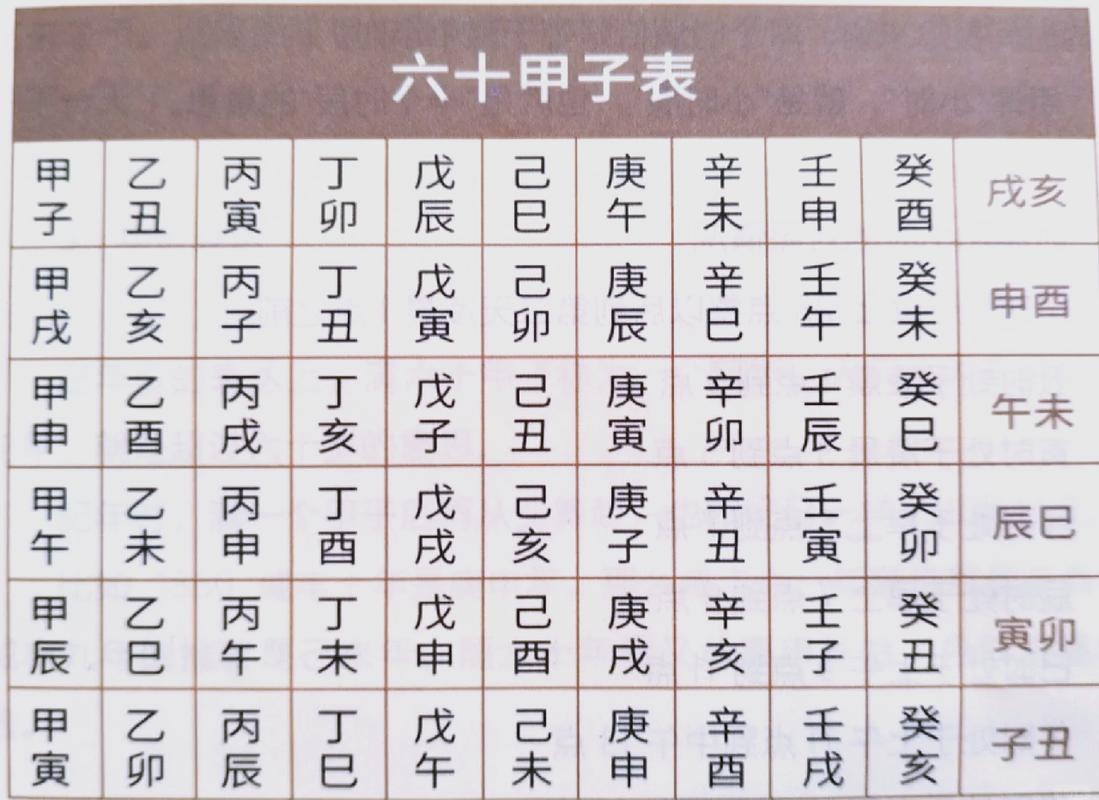 六十甲子表
甲子 乙丑 丙寅 丁卯 戊辰 己巳 庚午 辛未 壬申 癸酉 戌亥
甲戌 乙亥 丙子 丁丑 戊寅 己卯 庚辰 辛巳 壬午 癸未 申酉
甲申 乙酉 丙戌 丁亥 戊子 己丑 庚寅 辛卯 壬辰 癸巳 午未
甲午 乙未 丙申 丁酉 戊戌 己亥 庚子 辛丑 壬寅 癸卯 辰巳
甲辰 乙巳 丙午 丁未 戊申 己酉 庚戌 辛亥 壬子 癸丑 寅卯
甲寅 乙卯 丙辰 丁巳 戊午 己未 庚申 辛酉 壬戌 癸亥 子丑